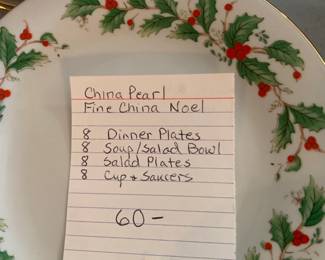 China Pearl
Fine China Noel
8 Dinner Plates
8 Soup/Salad Bowl
8 Salad Plates
8 Cup + Saucers
60-